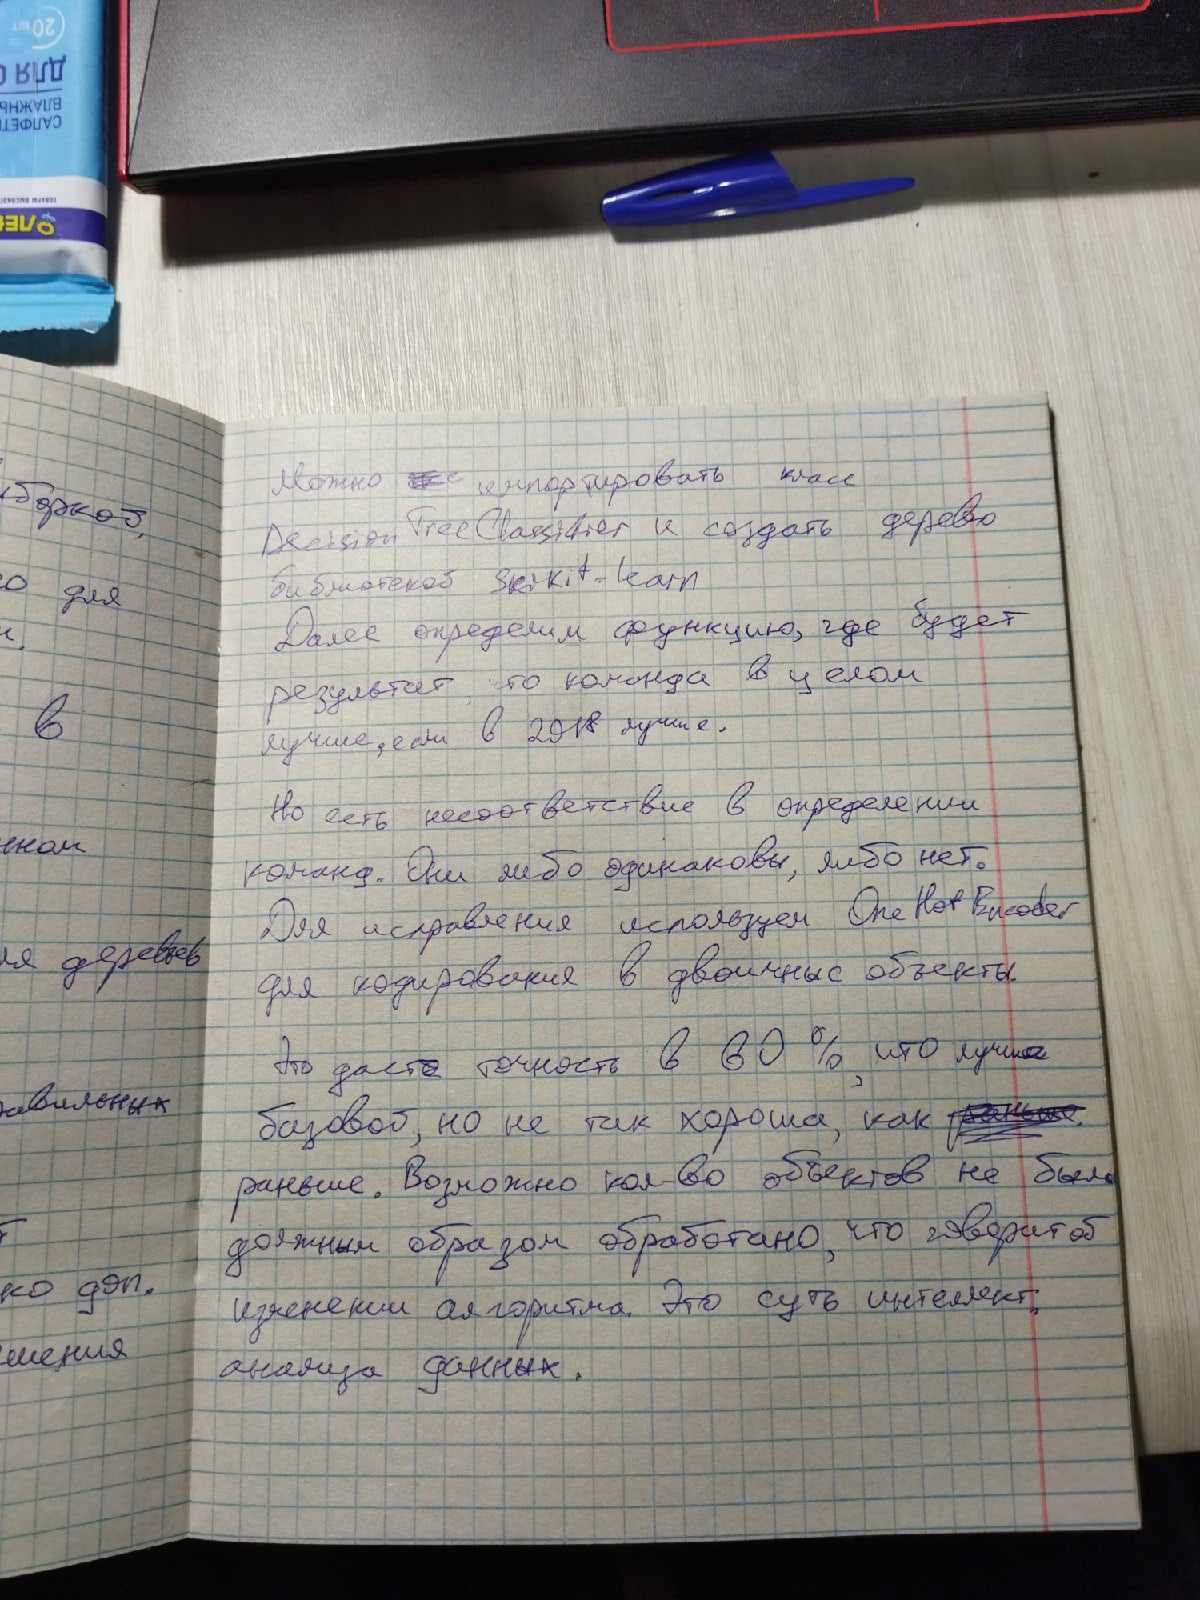 20 шт
ДЛЯ
ВЛАЖНЫ
САЛФЕТ
ЛЕ
боркой,
о для
в
нном
ия деревьев
равильных
ко доп.
шения
Можно импортировать класс
DecisionTreeClassifier и создать дерево
библиотекой Scikit-learn
Далее определим функцию, где будет
результат, что команда в целом
лучше, если в 2018 лучше.
Но есть несоответствие в определении
команд. Они либо одинаковы, либо нет.
Для исправления используем OneHotEncoder
для кодирования в двоичные объекты
Это даст точность в 60%, что лучше
базовой, но не так хороша, как раньше
раньше. Возможно кол-во объектов не было
должным образом обработано, что говорит об
изменении алгоритма. Это суть интеллект.
анализа данных.